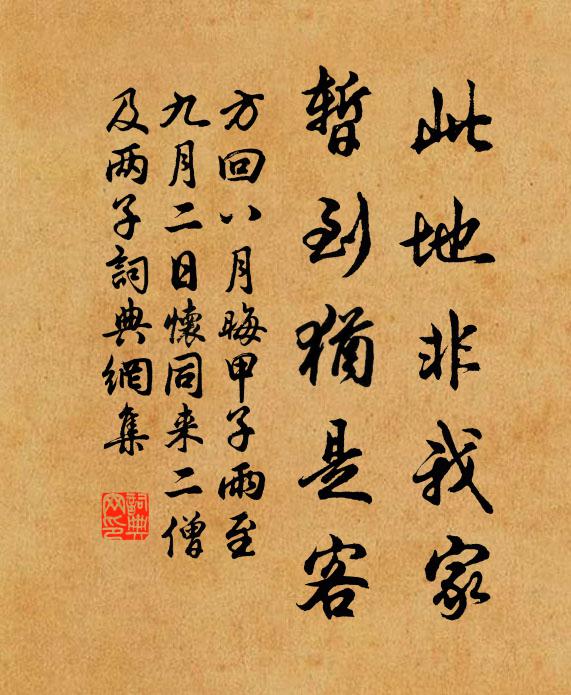 此地非我家
暫到猶是客
方回八月晦甲子雨至
九月二日懷同来二僧
及两子詞典網集
詞典